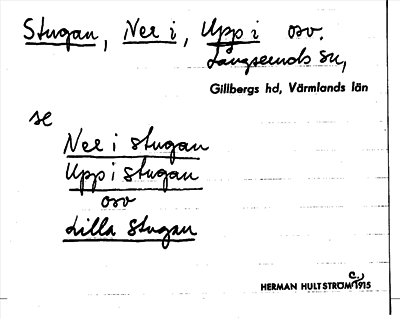 Stugan, Ner i, Upp i osv.
Långseruds sn,
Gillbergs hd, Värmlands län
se
Ner i stugan
Upp i stugan
osv
Lilla stugan
HERMAN HULTSTRÖM c. 1915